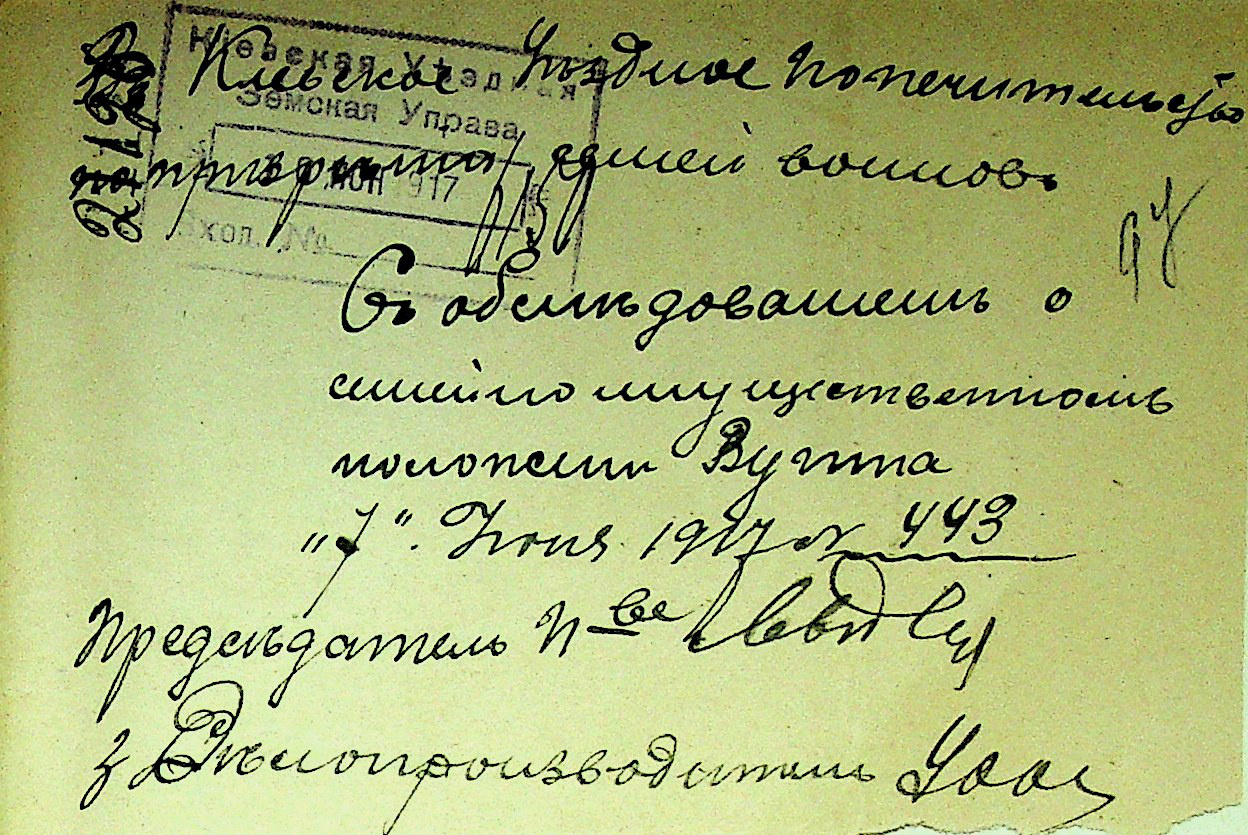 Кіевская Уѣздная
Земская Управа
ІЮН 1917
Вход. №
Въ Кіевское Уѣздное Попечительство
по призрѣнію семей воиновъ
97
Съ обслѣдованіемъ о
семейно имущественномъ
положеніи
„7". Іюня 1917 № 443
Предсѣдатель П-ва
з Дѣлопроизводитель